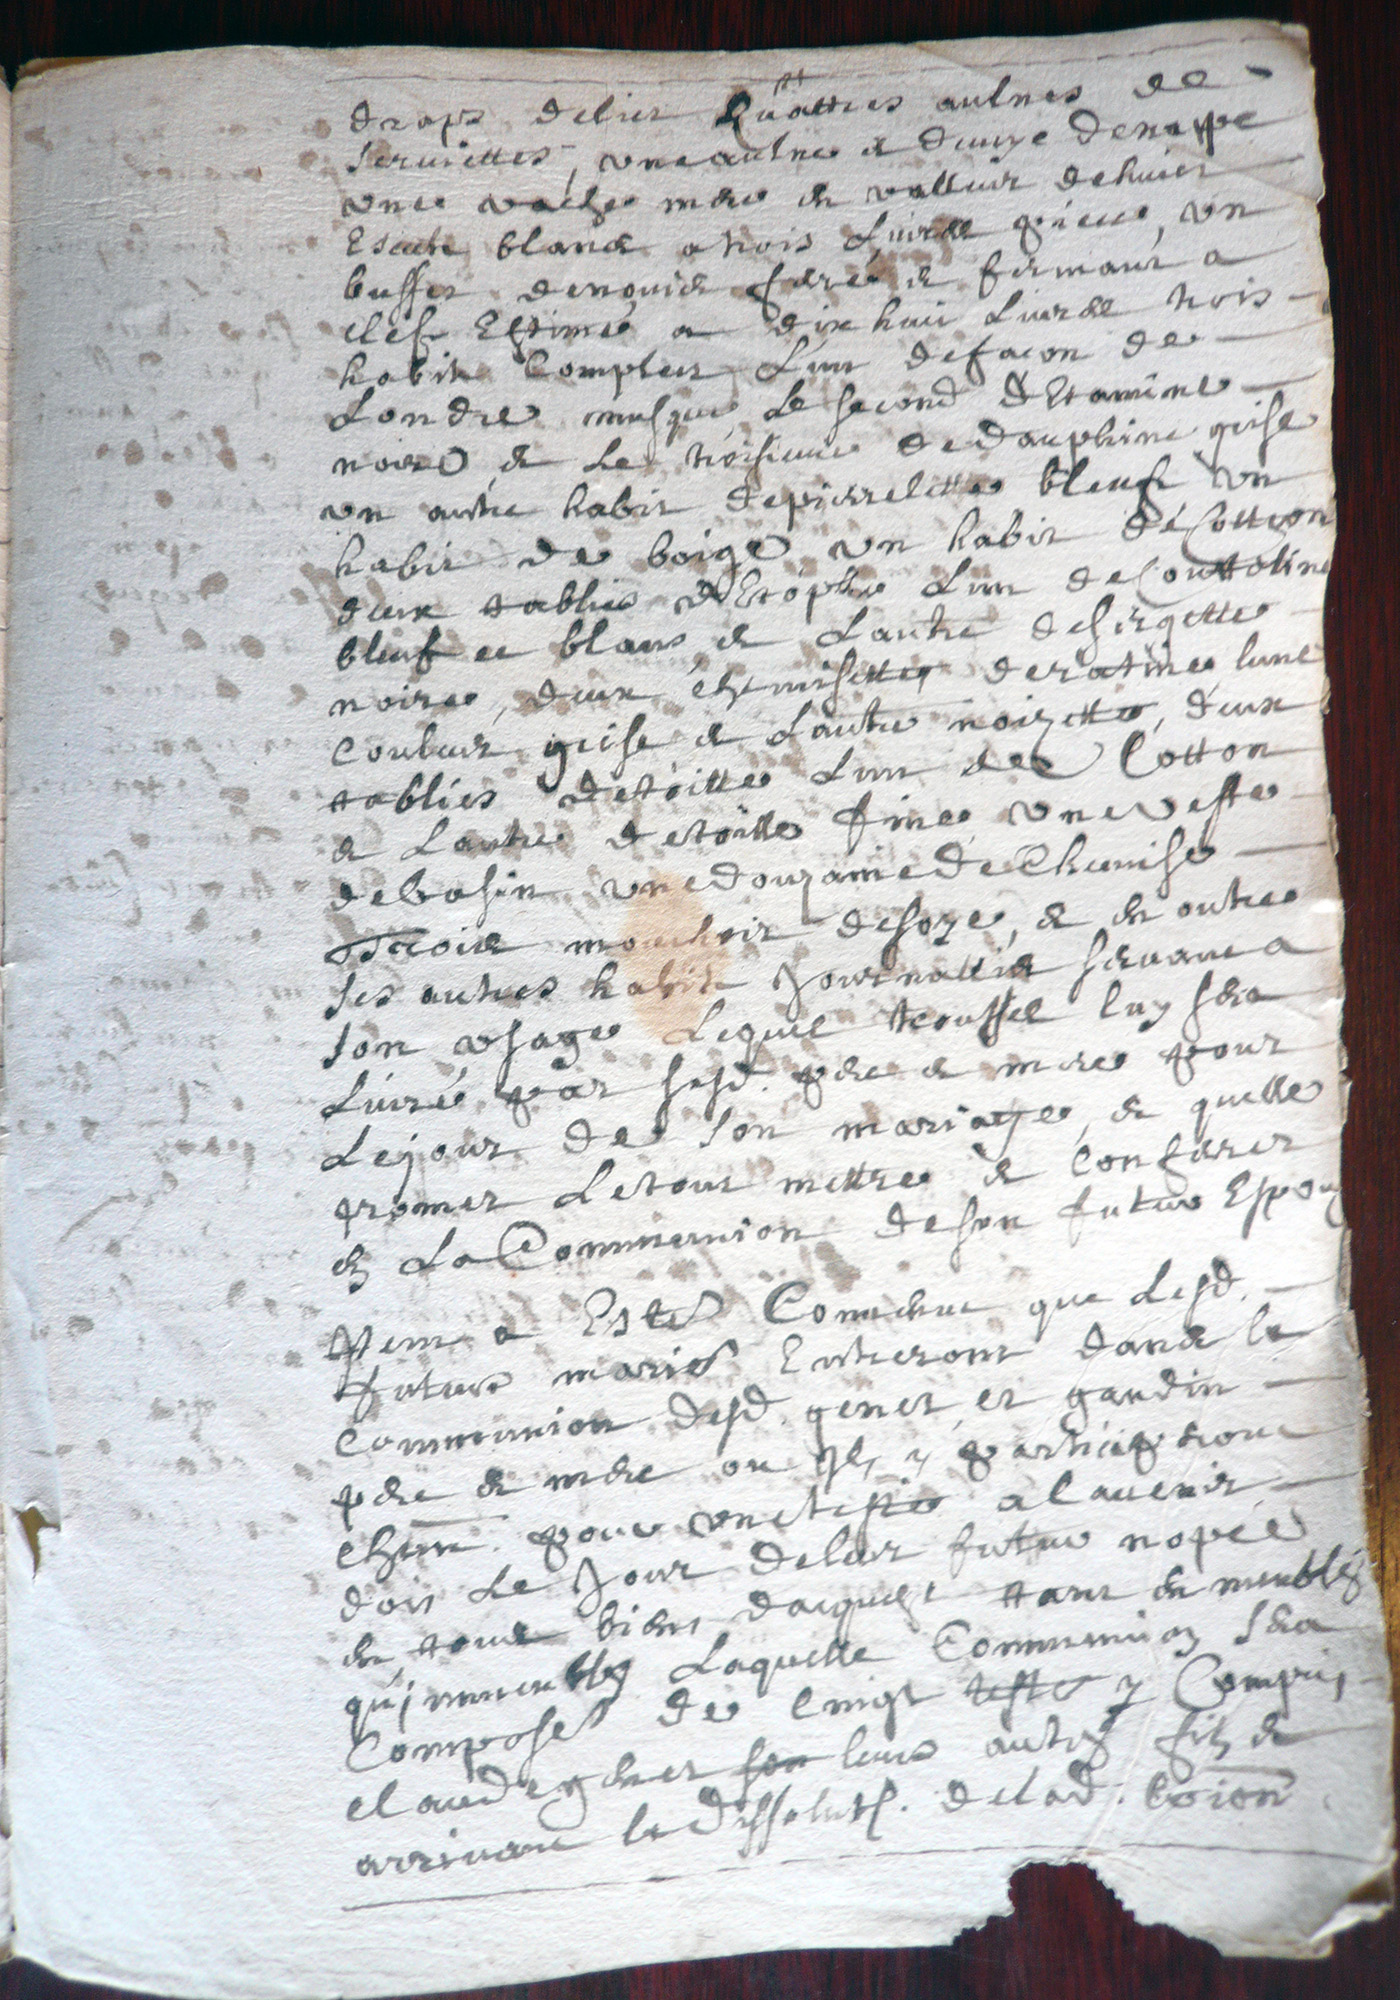 draps de lict quattres aulnes de
serviettes, une aulne et demye de nappe
une vache mere en valleur de huict
Escutz blancz a trois Livres piece, un
buffet de nouier ferré et fermant a
clef Estimé a dix huit Livres trois
habitz Complet L'un de facon de
Londre musque Le second d'Etamine
noire et Le troisieme de dauphine grise
un autre habit de pierrelatte bleuf un
habit de boige un habit de Cotton
deux tabliers d'Etophe L'un de Couttoline
bleuf et blanc et Lautre de sirgette
noire, deux chemisettes de ratine lune
Couleur grise et Lautre noizette, deux
tabliers de toille L'un de Cotton
et Lautre de toille fine une veste
de basin une douzaine de Chemise
trois mouchoir de soye, et en outre
ses autres habitz Journallier servant a
son usage Lequel troussel luy sera
Livré par sesd. pere et mere pour
Le jour de son mariage, et quelle
promet Le tout mettre et Conferer
en La Communion de son futur Espoux
Item a Esté Convenu que Lesd.
futurs mariés Entreront dans la
Communion desd. genet et gaudin
pere et mere ou ilz y participeront
chacun pour une teste a lavenir
dois Le Jour de leur future nopce
en tous biens dacquest tant en meubles
qu'immeubles Laquelle Communion sera
Composée de Cinq testes y Compris
claude genet leur autre filz et
arrivant la dissolut. de lad. Coion